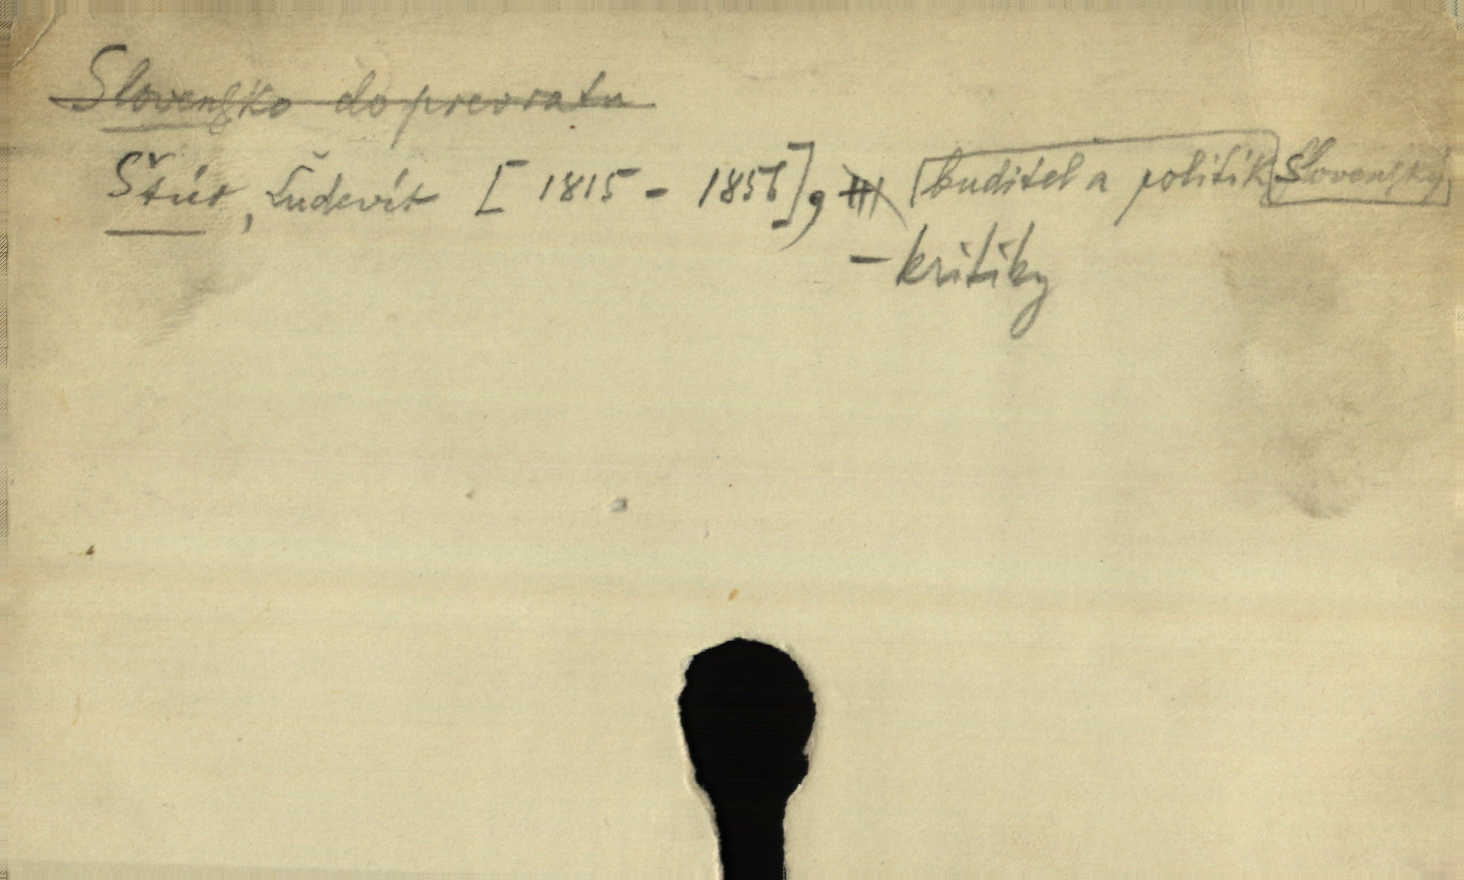 Slovensko do prevratu
Štúr, Ľudevít [1815 - 1856], buditel a politik Slovenský
- kritiky